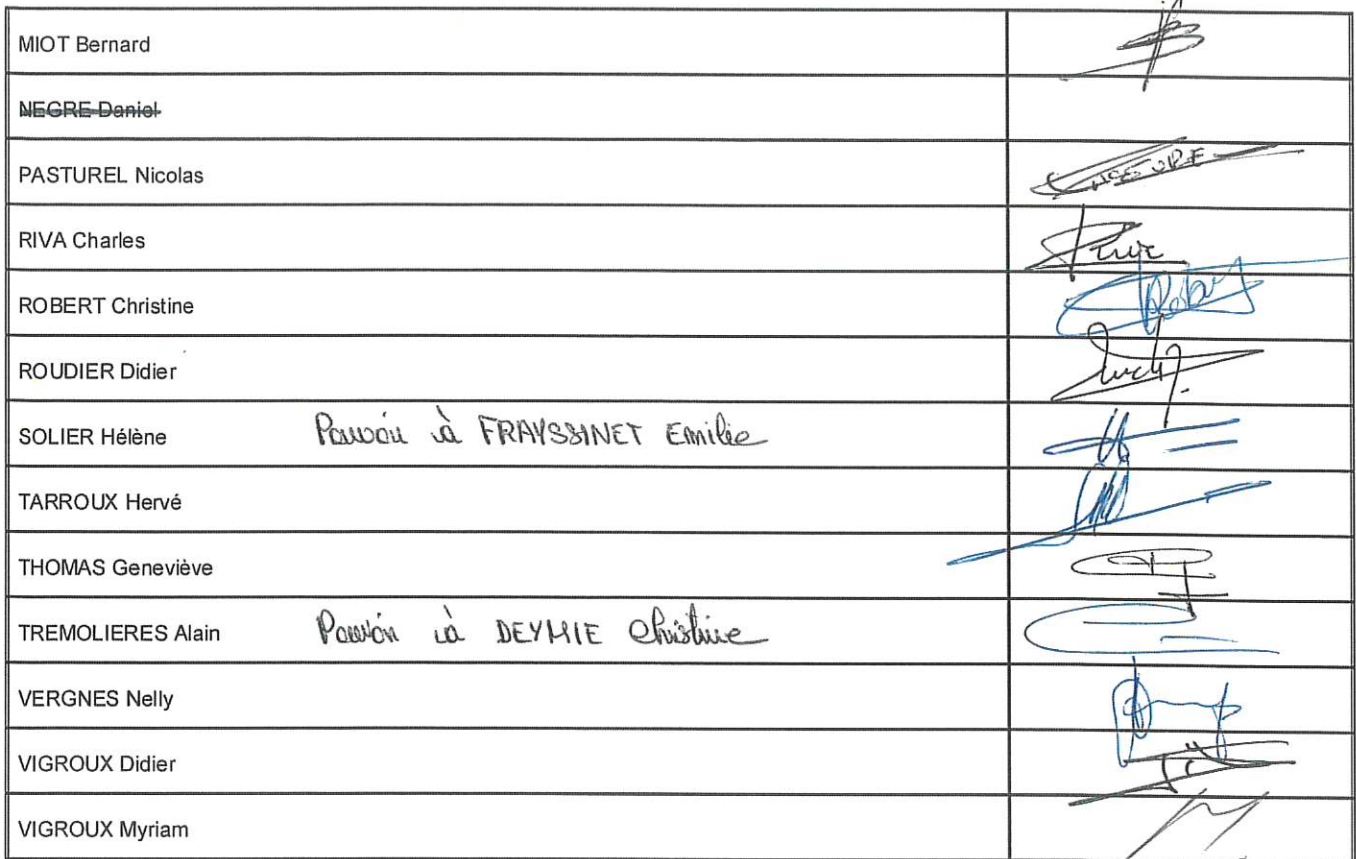 MIOT Bernard
NEGRE Daniel
PASTUREL Nicolas
RIVA Charles
ROBERT Christine
ROUDIER Didier
SOLIER Hélène Pouvoir à FRAYSSINET Emilie
TARROUX Hervé
THOMAS Geneviève
TREMOLIERES Alain Pouvoir à DEYMIE Christine
VERGNES Nelly
VIGROUX Didier
VIGROUX Myriam